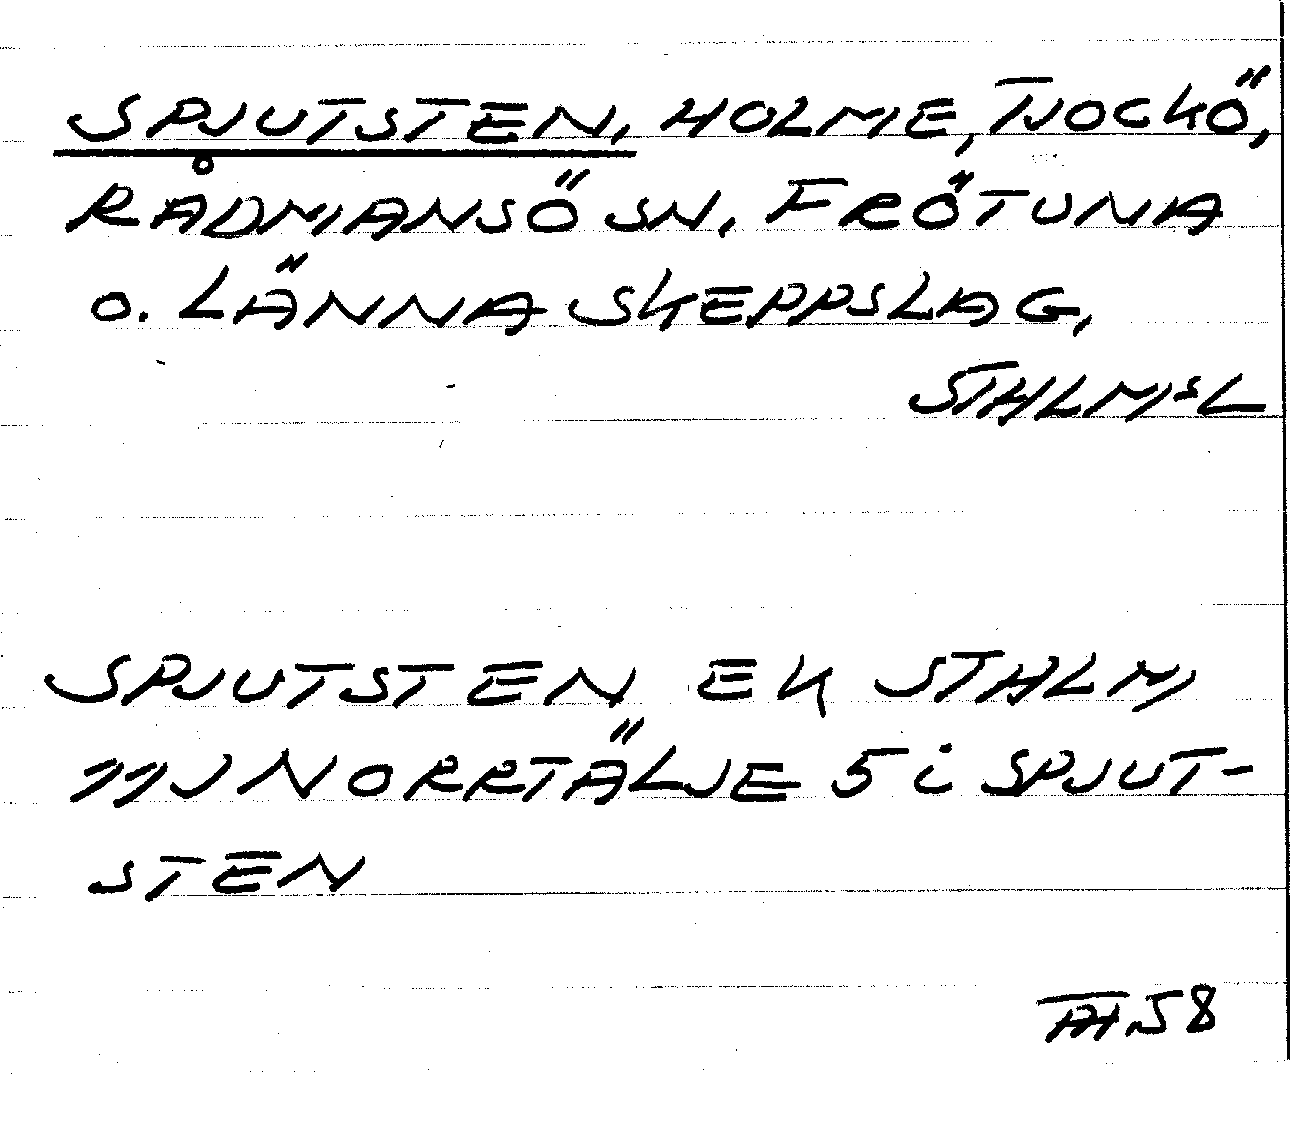 SPJUTSTEN, HOLME, TJOCKÖ,
RÅDMANSÖ SN, FRÖTUNA
O. LÄNNA SKEPPSLAG,
STHLMSL
SPJUTSTEN EK STHLM
11J NORRTÄLJE 5 i SPJUT-
STEN
58